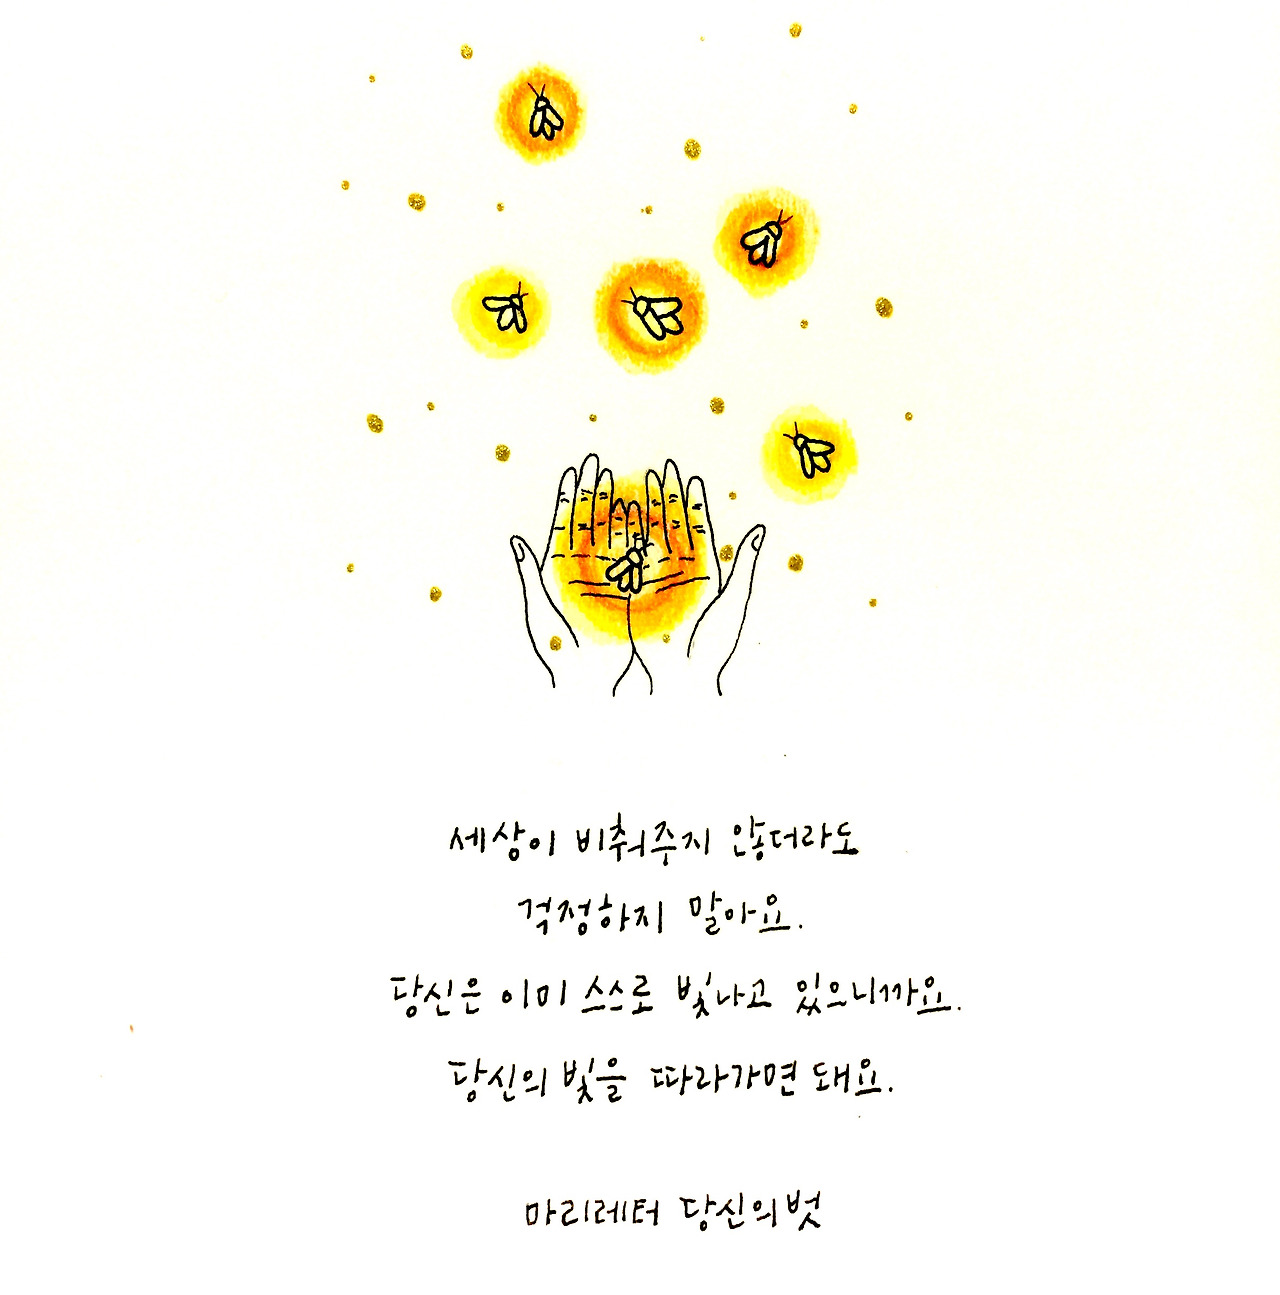 세상이 비춰주지 않더라도
걱정하지 말아요.
당신은 이미 스스로 빛나고 있으니까요.
당신의 빛을 따라가면 돼요.
마리레터 당신의벗